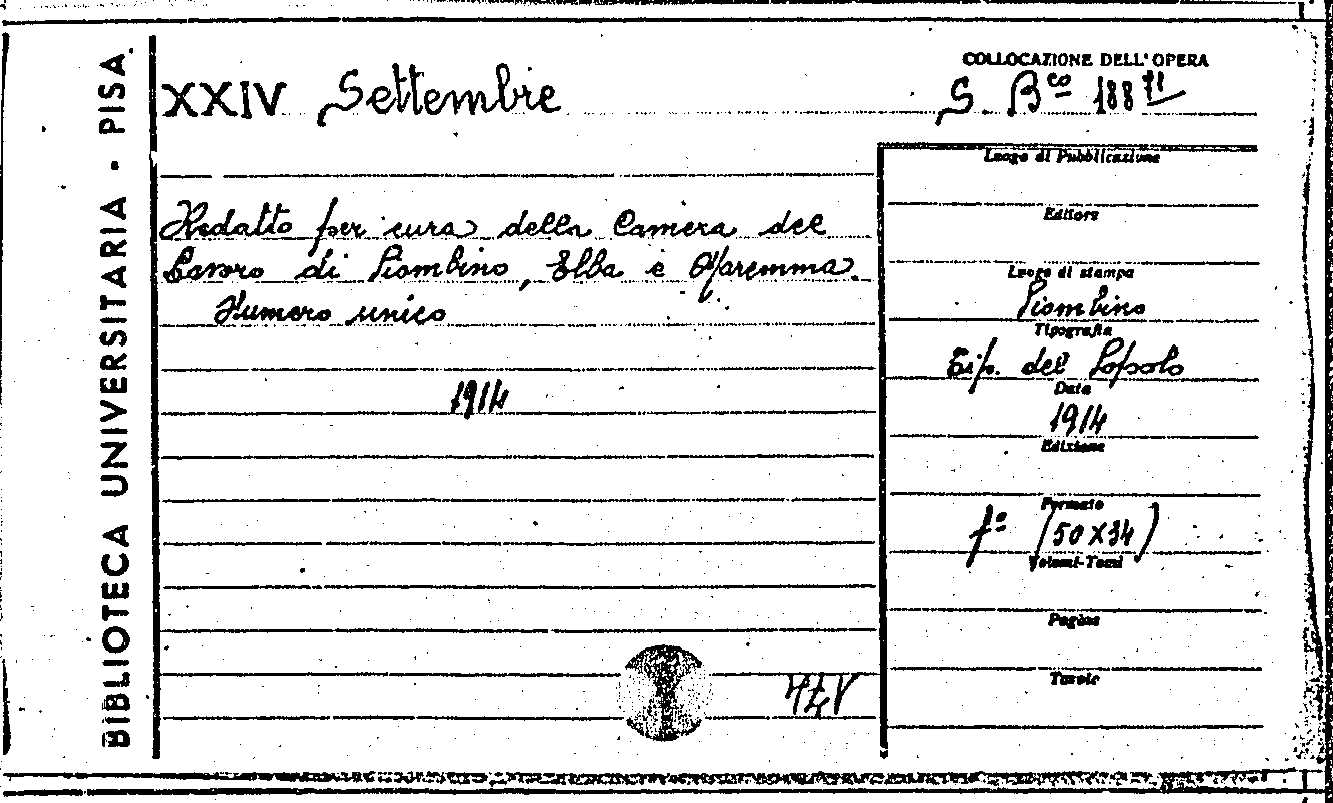 BIBLIOTECA UNIVERSITARIA - PISA
XXIV Settembre
COLLOCAZIONE DELL'OPERA
S. Bco 188
Redatto per cura della Camera del
Lavoro di Piombino, Elba e Maremma.
Numero unico
1914
Luogo di Pubblicazione
Editore
Luogo di stampa
Piombino
Tipografia
Tip. del Popolo
Data
1914
Edizione
Formato
fº (50X34)
Volumi-Tomi
Pagine
Tavole